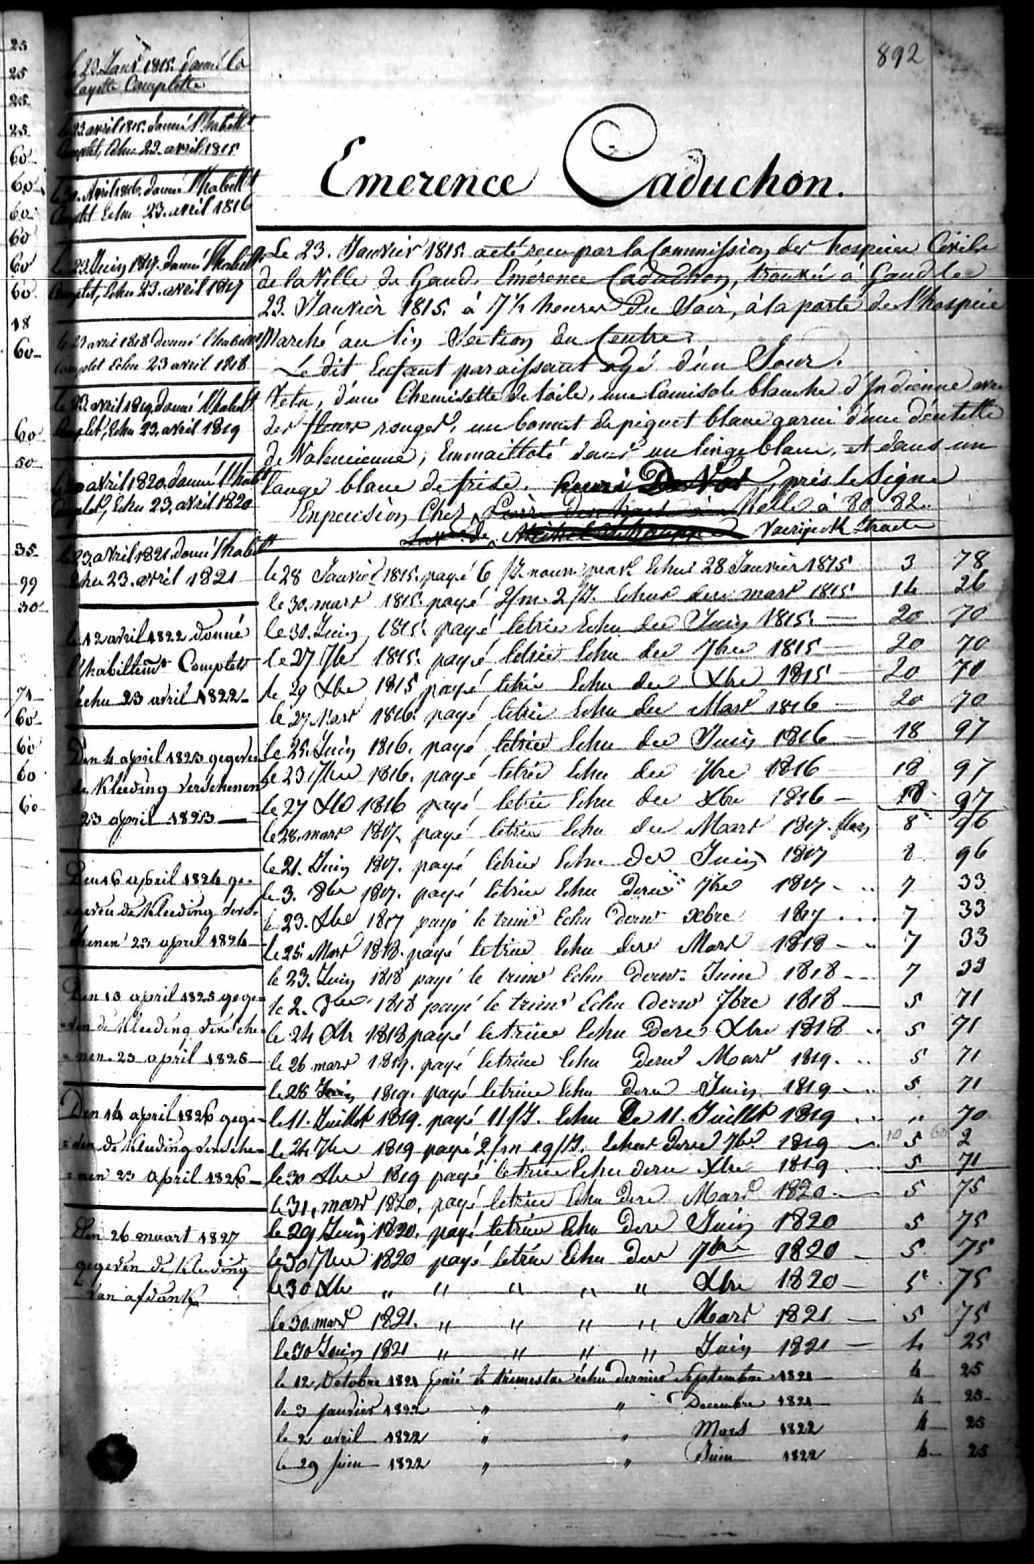 892
Emerence Caduchon.
Le 23. Janvier 1815. acté reçu par la Commission des hospices Civils
de la Ville de Gand. Emerence Caduchon, trouvée à Gand le
23. Janvier 1815 à 7½ heures du Soir, à la porte de l'hospice
Marché au lin Section du Centre.
Le dit Enfant paraissant agé d'un Jour.
Vetu, d'une Chemisette de toile, une Camisole blanche d'Indienne avec
des fleurs rouges, un bonnet de piquet blanc garni d'une dentelle
de Valencienne, Emmailloté dans un linge blanc, et dans un
lange blanc de frise. près le Signe
En pension Chez Melle à 80. 82.
le 23 Janv 1815. donné la
Layette Complette
le 23 avril 1815. donné l'habillt
Complet, Echu 23. avril 1815
Avril 1816. donné l'habillt
Complt Echu 23. avril 1816
le 23 Juin 1817. donné l'habillt
Complet, Echu 23. avril 1817
le 23 avril 1818 donné l'habillt
Complet Echu 23 avril 1818
le 23. avril 1819. donné l'habillt
Complet, Echu 23. avril 1819
avril 1820. donné l'habillt
Complet, Echu 23. avril 1820
le 23. avril 1821. donné l'habillt
Echu 23. avril 1821
le 12 avril 1822 donné
l'habillemt Complett
échu 23 avril 1822
Den 4 april 1823 gegeven
de Kleeding verschenen
23 april 1823
Den 16 april 1824 ge-
geven de Kleeding vers-
chenen 23 april 1824
Den 13 april 1825 gege-
ven de Kleeding versche-
nen 23 april 1825
Den 14 april 1826 gege-
ven de Kleeding versche-
nen 23 april 1826
Den 26 maart 1827
gegeven de Kleeding
le 28 Janvier 1815. payé 6 Echu 28 Janvier 1815 3 78
le 30. mars 1815. payé 2/m. 2/J. Echus des mars 1815 14 26
le 30. Juin 1815. payé letrie Echu der Juin 1815 20 70
le 27 7bre 1815. payé letrie Echu der 7bre 1815 20 70
le 29 Xbre 1815 payé letrie Echu der Xbre 1815 20 70
le 27 Mars 1816. payé letrie Echu der Mars 1816 20 70
le 25. Juin 1816. payé letrie Echu der Juin 1816 18 97
le 23 7bre 1816. payé letrie Echu der 7bre 1816 18 97
le 27 Xbre 1816 payé letrie Echu der Xbre 1816 18 97
le 28. mars 1817. payé letrie Echu der Mars 1817. 8 96
le 21. Juin 1817. payé letrie Echu der Juin 1817 8 96
le 3. 8bre 1817. payé letrie Echu dernr 7bre 1817 7 33
le 23. Xbre 1817 payé le trime Echu dernr Xbre 1817 7 33
le 25 Mars 1818. payé letrie Echu derr Mars 1818 7 33
le 23. Juin 1818 payé le trime Echu dernr Juin 1818 7 33
le 2. 8bre 1818 payé le trime Echu dernr 7bre 1818 5 71
le 24 Xbr 1818 payé letrime Echu derr Xbre 1818 5 71
le 26 mars 1819. payé letrime Echu dernr Mars 1819. 5 71
le 28 Juin 1819. payé letrime Echu derr Juin 1819 5 71
le 11. Juillet 1819. payé 11/J. Echu le 11. Juillet 1819 " 70
le 24 7bre 1819 payé 2/m 19/J. Echus derr 7bre 1819 5 2
le 30 Xbre 1819 payé letrie Echu derr Xbre 1819 5 71
le 31, mars 1820, payé letrie Echu derr Mars 1820 5 75
le 29 Juin 1820. payé letrime Echu derr Juin 1820 5 75
le 30 7bre 1820 payé letrie Echu der 7bre 1820 5 75
le 30 Xbr " " " " " Xbre 1820 5 75
le 30 mars 1821. " " " " Mars 1821 5 75
le 30 Juin 1821 " " " " Juin 1821 4 25
le 12 Octobre 1821 paié le trimestre échu dernier Septembre 1821 4 25
le 3 janvier 1822 " " Decembre 1821 4 25
le 2 avril 1822 " " Mars 1822 4 25
le 29 juin 1822 " " Juin 1822 4 25